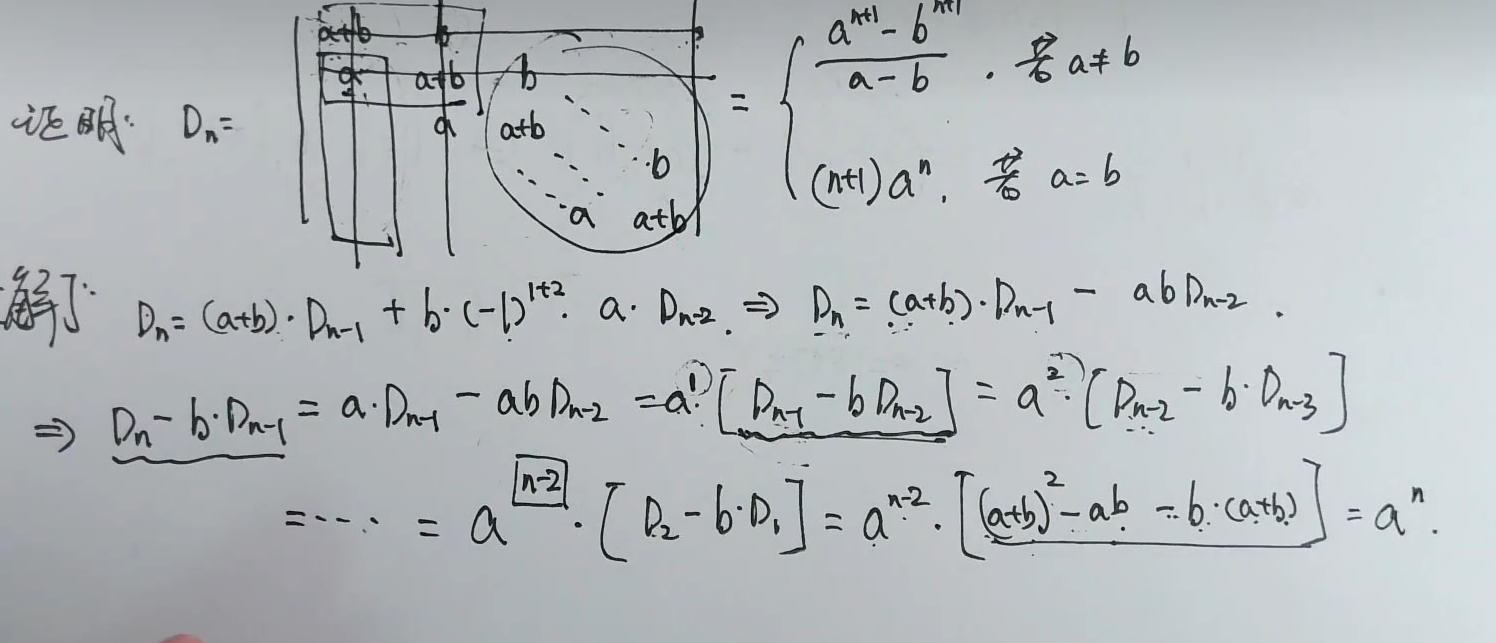 证明: Dₙ = | a+b b
a a+b b
a a+b
b
a a+b | = { (aⁿ⁺¹ - bⁿ⁺¹)/(a - b) . 若 a≠b
(n+1)aⁿ, 若 a=b
解: Dₙ = (a+b)·Dₙ₋₁ + b·(-1)¹⁺²· a· Dₙ₋₂. ⇒ Dₙ = (a+b)·Dₙ₋₁ - abDₙ₋₂ .
⇒ Dₙ - b·Dₙ₋₁ = a·Dₙ₋₁ - abDₙ₋₂ = a¹·[Dₙ₋₁ - bDₙ₋₂] = a²·[Dₙ₋₂ - b·Dₙ₋₃]
= ···· = aⁿ⁻²·[D₂ - b·D₁] = aⁿ⁻²·[(a+b)² - ab - b·(a+b)] = aⁿ.